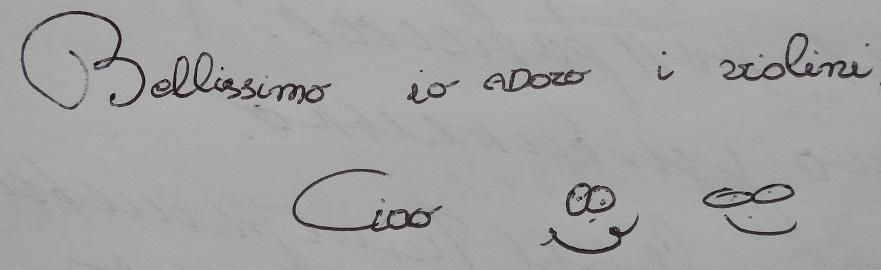 Bellissimo io ADORO i violini
Ciao